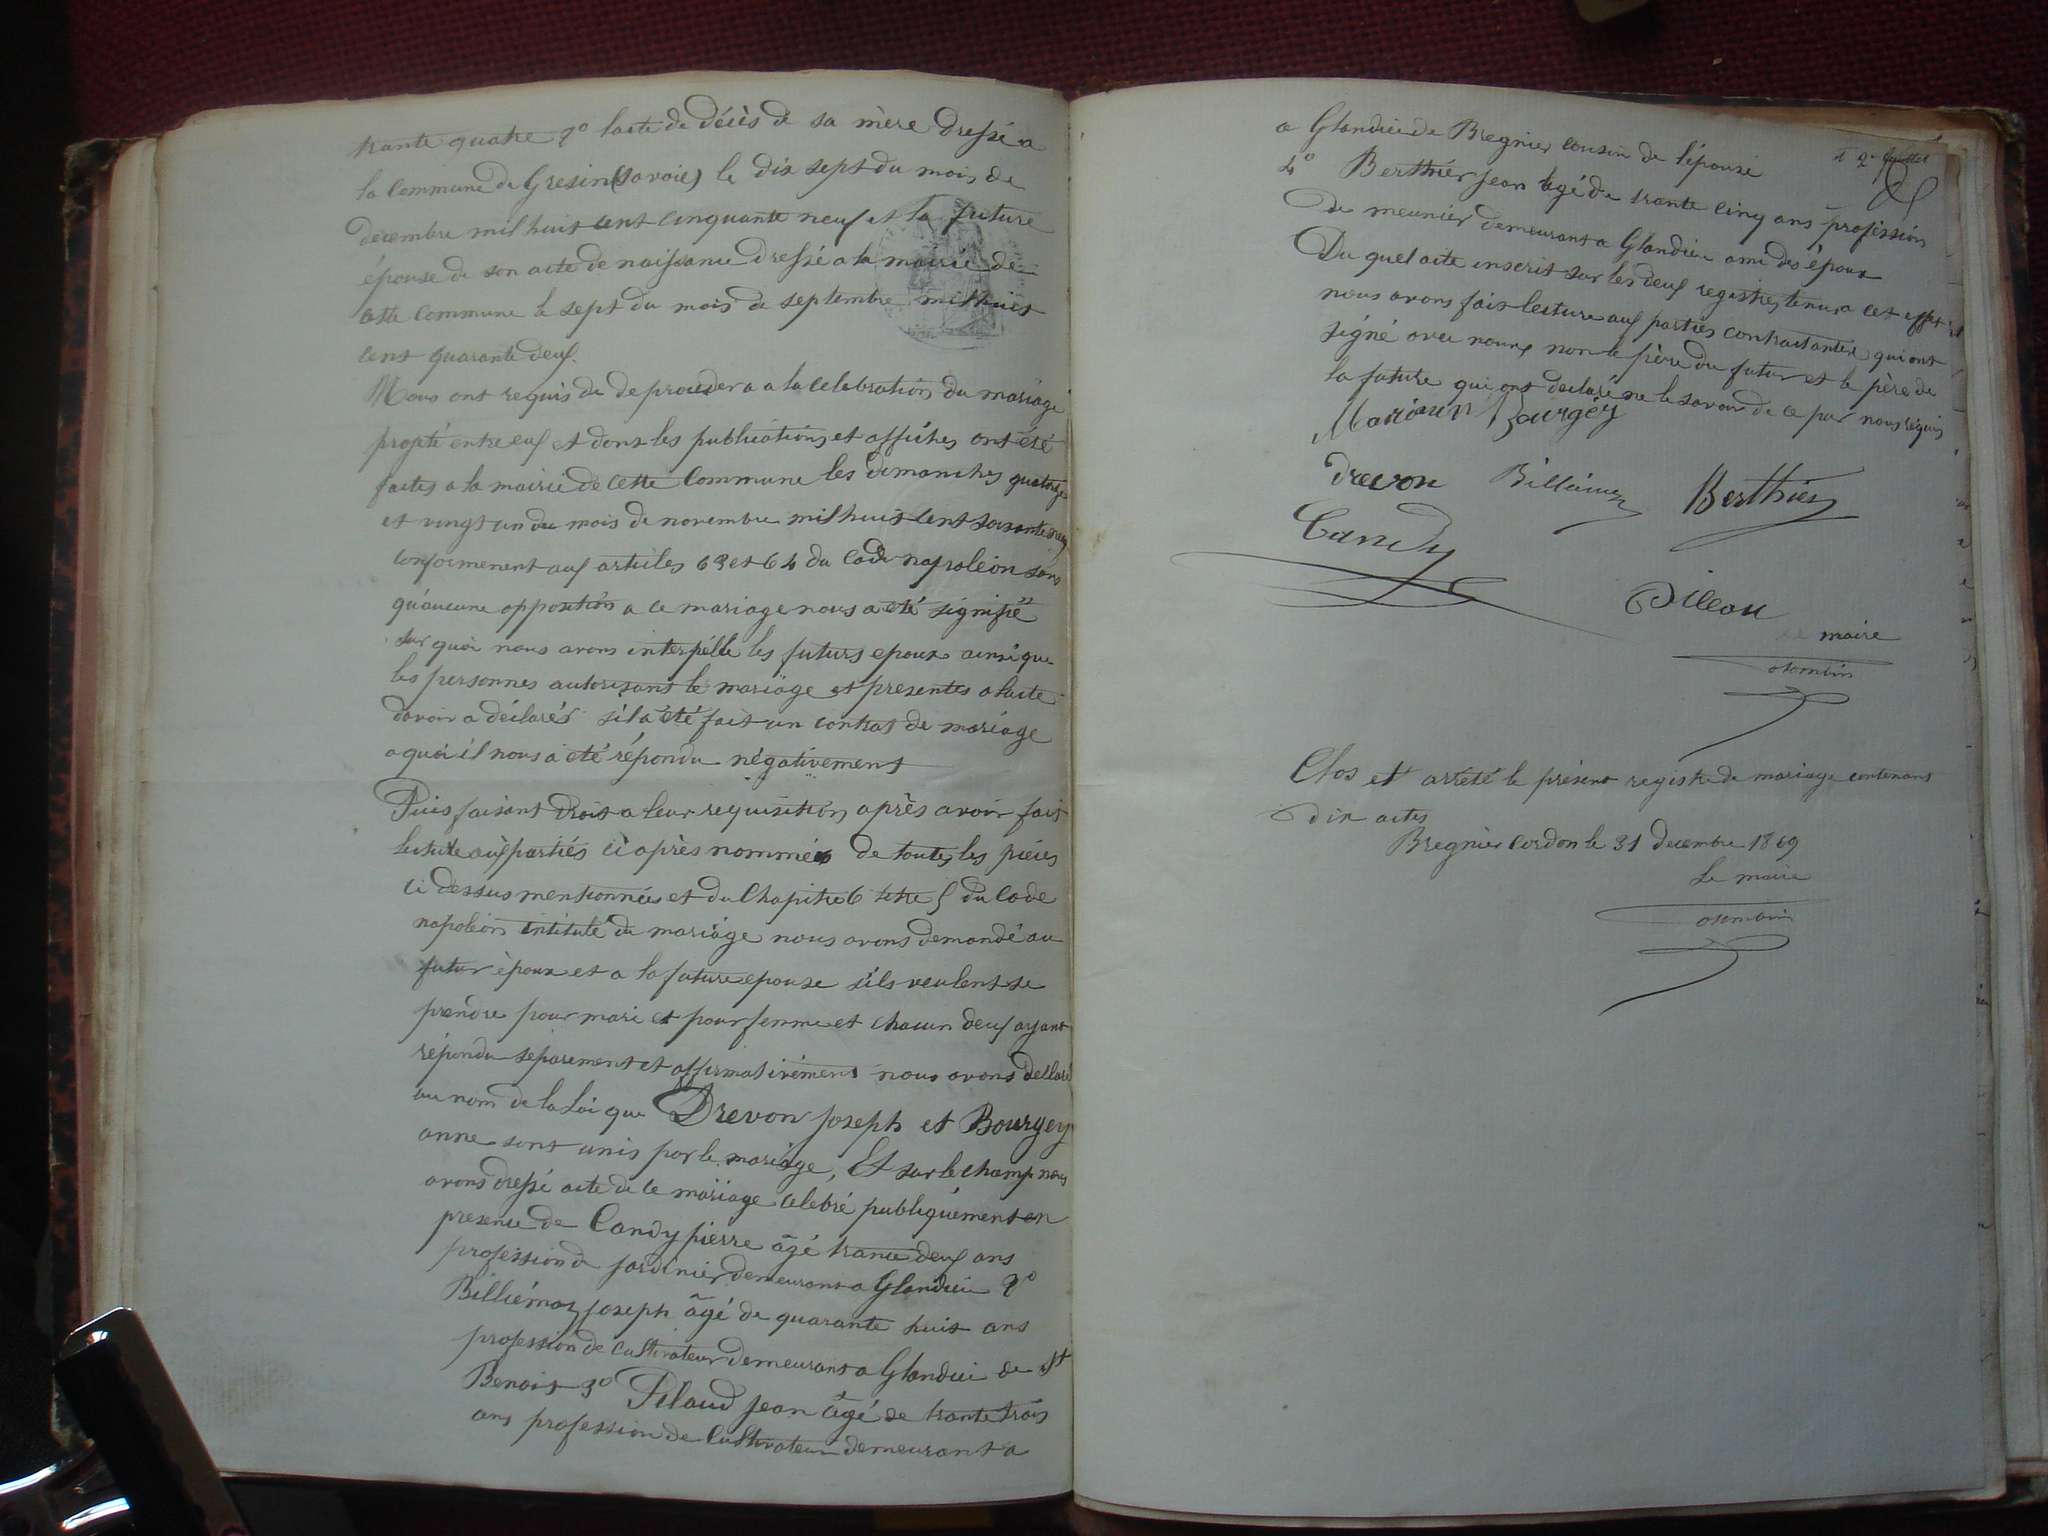 trante quatre 2° lacte de décès de sa mère dressé a
la commune de Gresin (savoie) le dix sept du mois de
decembre mil huit cent cinquante neuf et la future
épouse de son acte de naissance dressé a la mairie de
cette commune le sept du mois de septembre mil huit
cent quarante deuf.
Nous ont requis de de proceder a a la celebration du mariage
projeté entre euf et dont les publications et affiches ont été
faites a la mairie de cette commune les dimanches quatorze
et vingt un du mois de novembre mil huit cent soixante neuf
conformement auf articles 63 et 64 du code napoléon sans
qu'aucune opposition a ce mariage nous a été signifié
sur quoi nous avons interpéllé les futurs epoux ainsi que
les personnes autorisant le mariage et presentes a lacte
davoir a déclarés s'il a été fait un contrat de mariage
a quoi il nous a été répondu négativement
Puis faisant droit a leur requisition après avoir fait
lecture auf partiés ci après nommées de toutes les pièces
ci dessus mentionnées et du Chapitre 6 titre 5 du Code
napoléon intitulé du mariage nous avons demandé au
futur époux et a la future epouse s'ils veulent se
prendre pour mari et pour femme et chacun deuf ayant
répondu separement et affirmativement nous avons declaré
au nom de la Loi que Drevon joseph et Bourgey
anne sont unis par le mariage, Et sur le champ nous
avons dressé acte de ce mariage celebré publiquément en
presence de Candy pierre âgé trante deuf ans
profession de jardinier demeurant a Glandieu 2°
Billiémaz joseph âgé de quarante huit ans
profession de cultivateur demeurant a Glandieu de St
Benoit 3° Pilaud jean âgé de trante trois
ans profession de Cultivateur demeurant a
a Glandieu de Bregnier cousin de l'épouse
4° Berthier jean agé de trante cinq ans profession
de meunier demeurant a Glandieu ami des époux
Du quel acte inscrit sur les deuf registres tenus a cet effet
nous avons fait lecture auf parties contractantes qui ont
signé avec nous non le père du futur et le père de
la future qui ont declaré ne le savoir de ce par nous requis
Bourgey
Drevon Billiémaz Berthier
Candy
Pileau
le maire
Clos et arrété le présent registre de mariage contenant
dix actes
Bregnier Cordon le 31 decembre 1869
Le maire